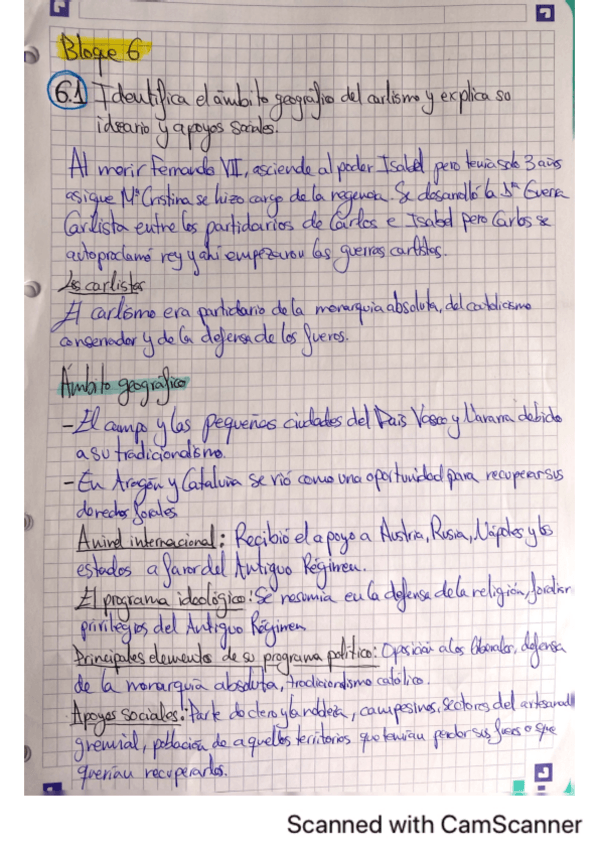 Bloque 6
6.1 Identifica el ámbito geográfico del carlismo y explica so
ideario y apoyos sociales.
Al morir Fernando VII, asciende al poder Isabel pero tenía solo 3 años
asi que Mª Cristina se hizo cargo de la regencia. Se desarrolló la 1ª Guerra
Carlista entre los partidarios de Carlos e Isabel pero Carlos se
autoproclamó rey y ahí empezaron las guerras carlistas.
Los carlistas
El carlismo era partidario de la monarquía absoluta, del catolicismo
conservador y de la defensa de los fueros.
Ámbito geográfico
- El campo y las pequeñas ciudades del País Vasco y Navarra debido
a su tradicionalismo.
- En Aragón y Cataluña se vió como una oportunidad para recuperar sus
derechos forales
A nivel internacional: Recibió el apoyo a Austria, Rusia, Nápoles y los
estados a favor del Antiguo Régimen.
El programa ideológico: Se resumía en la defensa de la religión, foralism
privilegios del Antiguo Régimen
Principales elementos de su programa político: Oposición a los liberales, defensa
de la monarquía absoluta, tradicionalismo católico.
Apoyos sociales: Parte do clero y la nobleza, campesinos, sectores del artesanad
gremial, población de aquellos territorios que temían perder sus fueros o que
querían recuperarlos.
Scanned with CamScanner